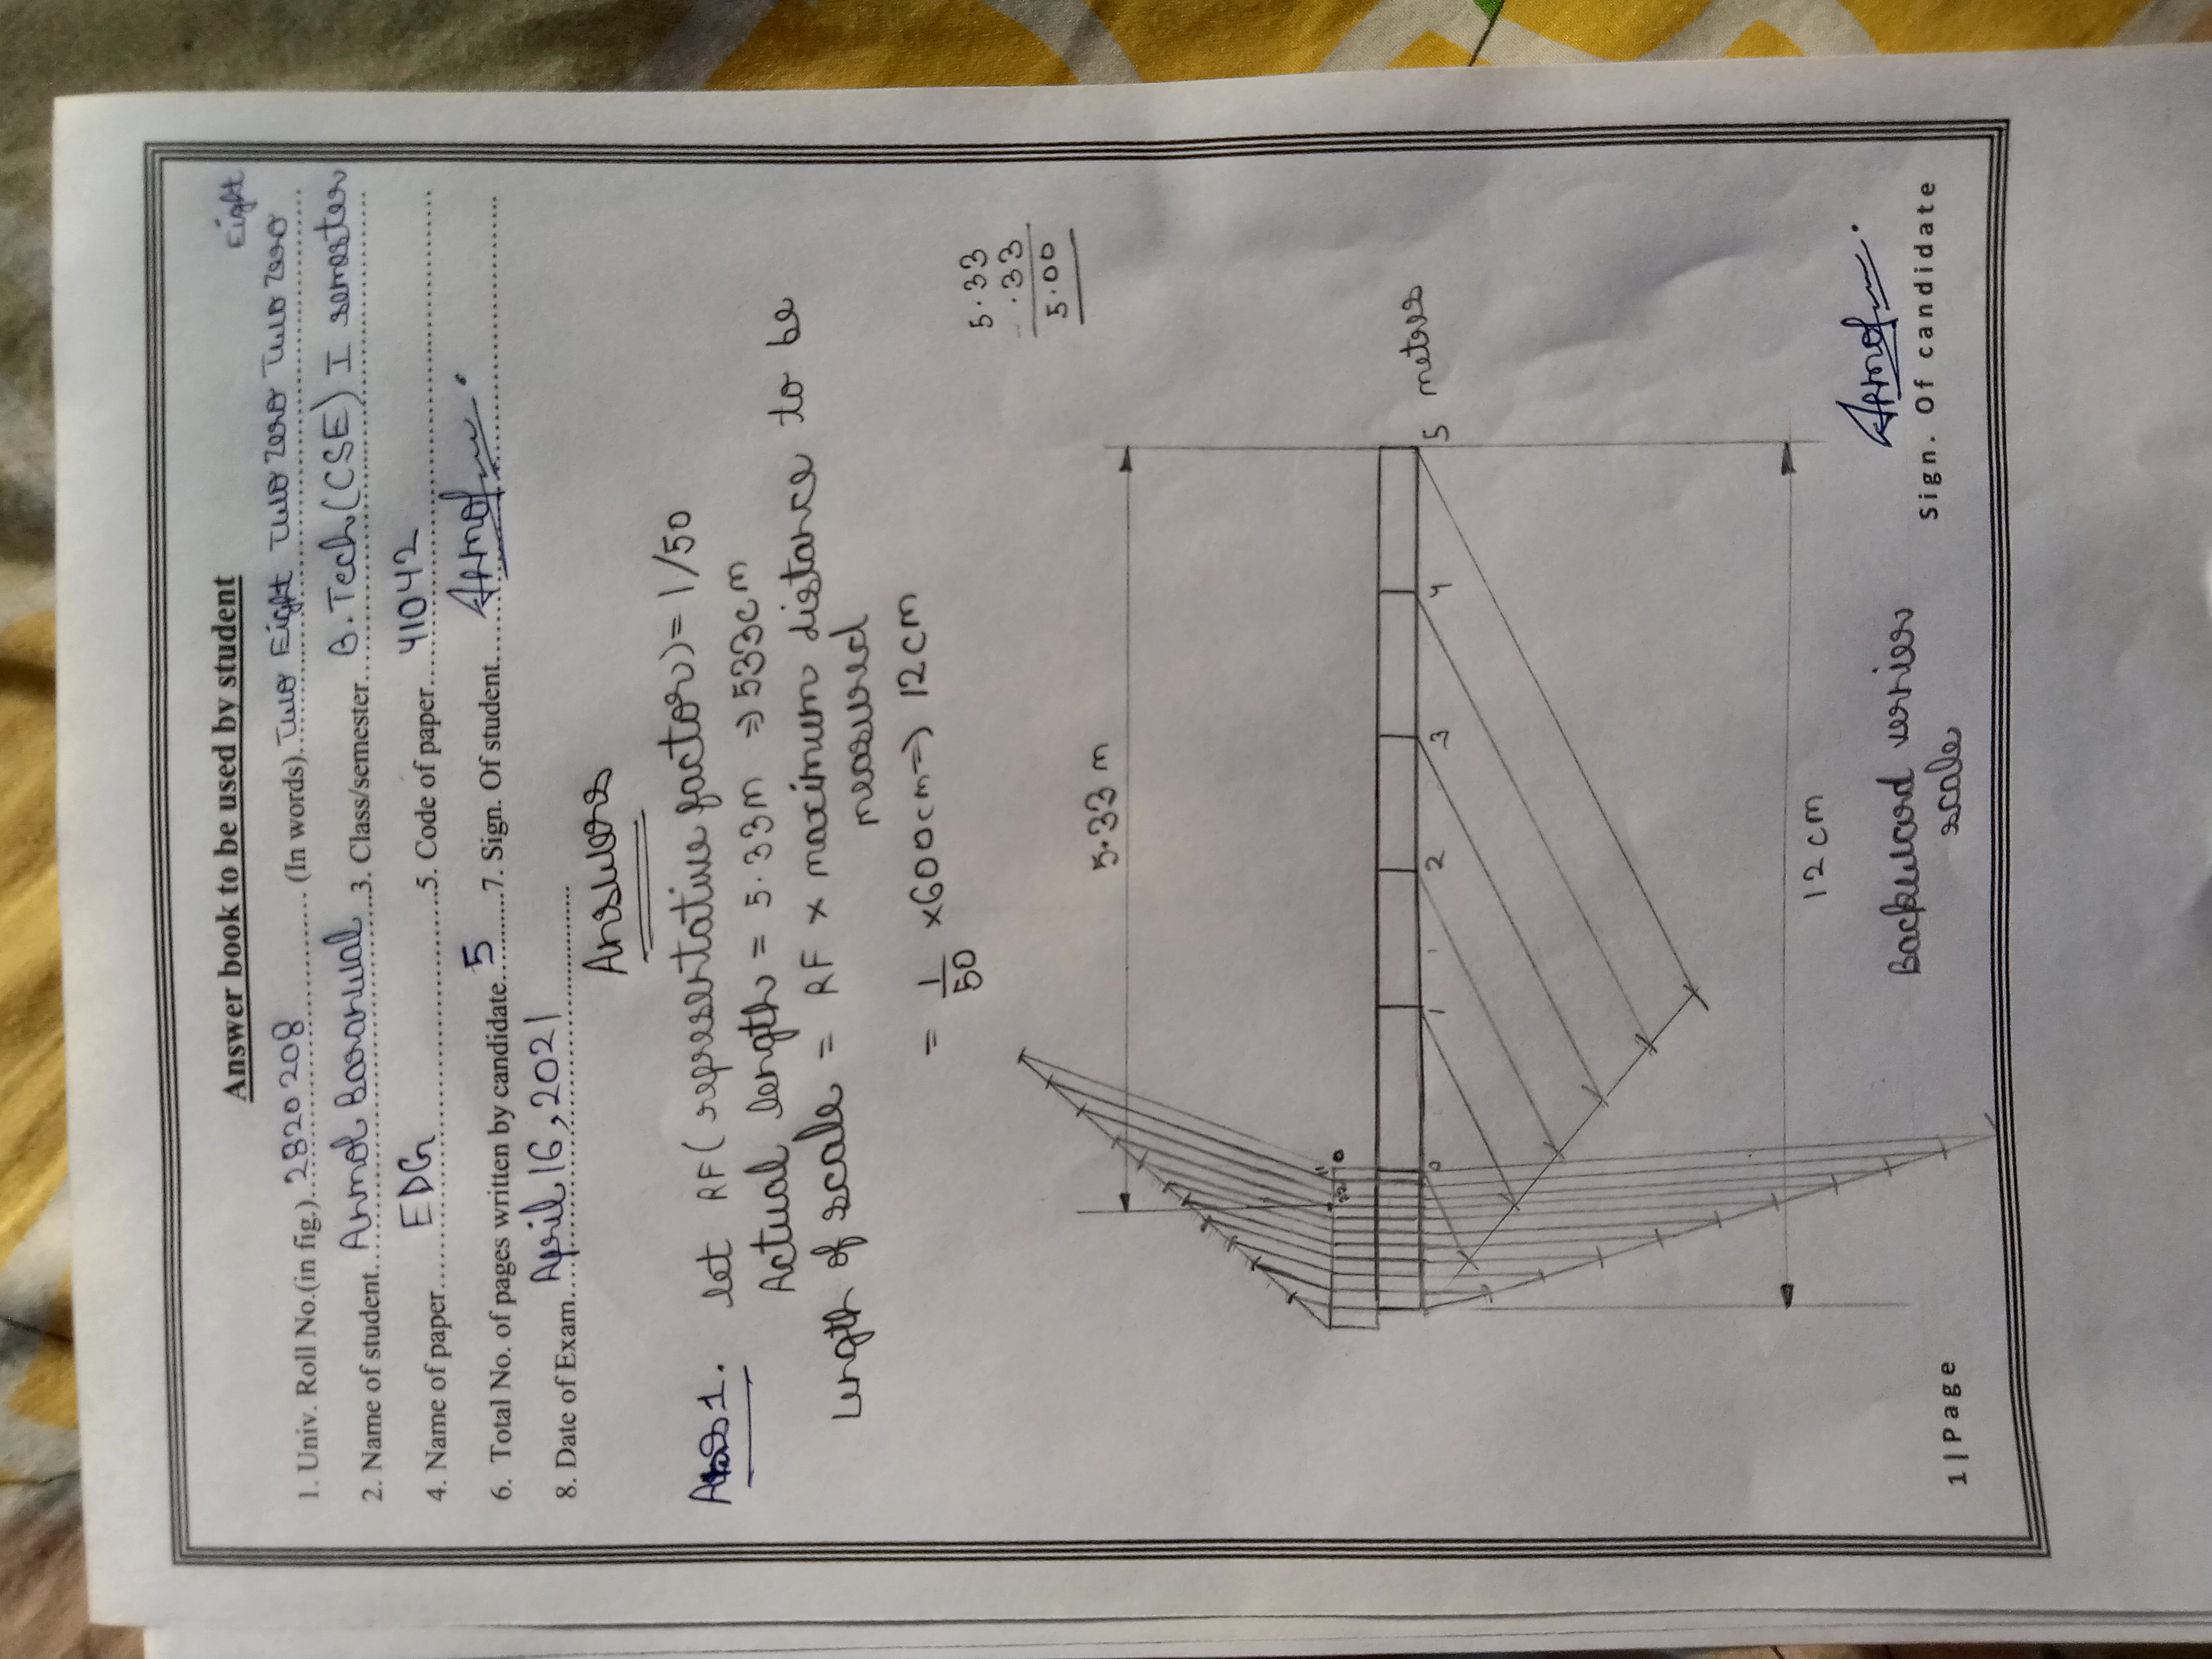 Answer book to be used by student
Eight
1. Univ. Roll No.(in fig.)..2820208............ (In words)..Two Eight Two zero Two zero
2. Name of student...Anmol Baranwal...3. Class/semester.....B.Tech(CSE) I semester
4. Name of paper......EDG......5. Code of paper.....41042
6. Total No. of pages written by candidate..5...7. Sign. Of student.....Anmol
8. Date of Exam.....April 16, 2021
Answers
Ans 1. let RF(representative factor) = 1/50
Actual length = 5.33m ⇒ 533cm
Length of scale = RF x maximum distance to be
measured
= 1/50 x600cm ⇒ 12cm
5.33
- .33
5.00
5.33 m
11 0
0 1 2 3 4 5 metres
12 cm
Backward vernier
scale
Anmol
1|Page Sign. Of candidate